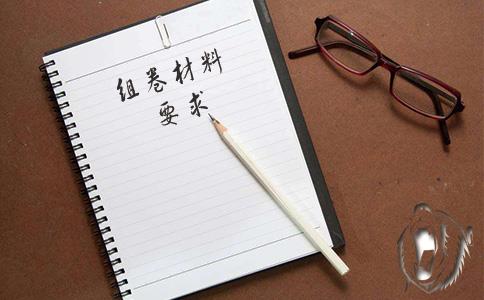 组卷材料
要求